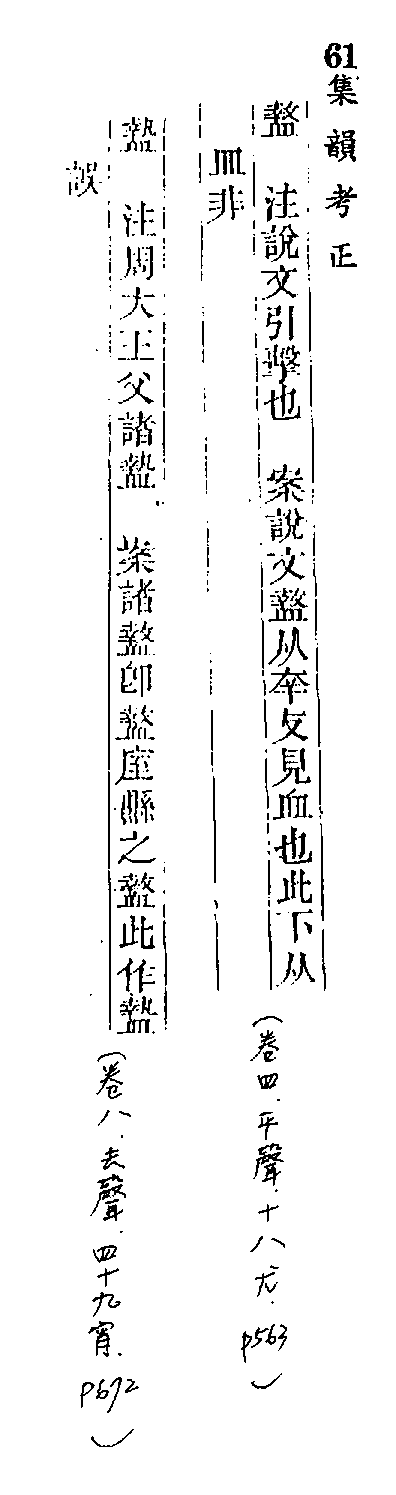 61 集韻考正
盩 注說文引擊也 案說文盩从㚔攴見血也此下从
皿非
注周大王父諸 案諸盩卽盩庢縣之盩此作
誤
(卷四.平聲.十八尤.p563)
(卷八.去聲.四十九宥.p672)